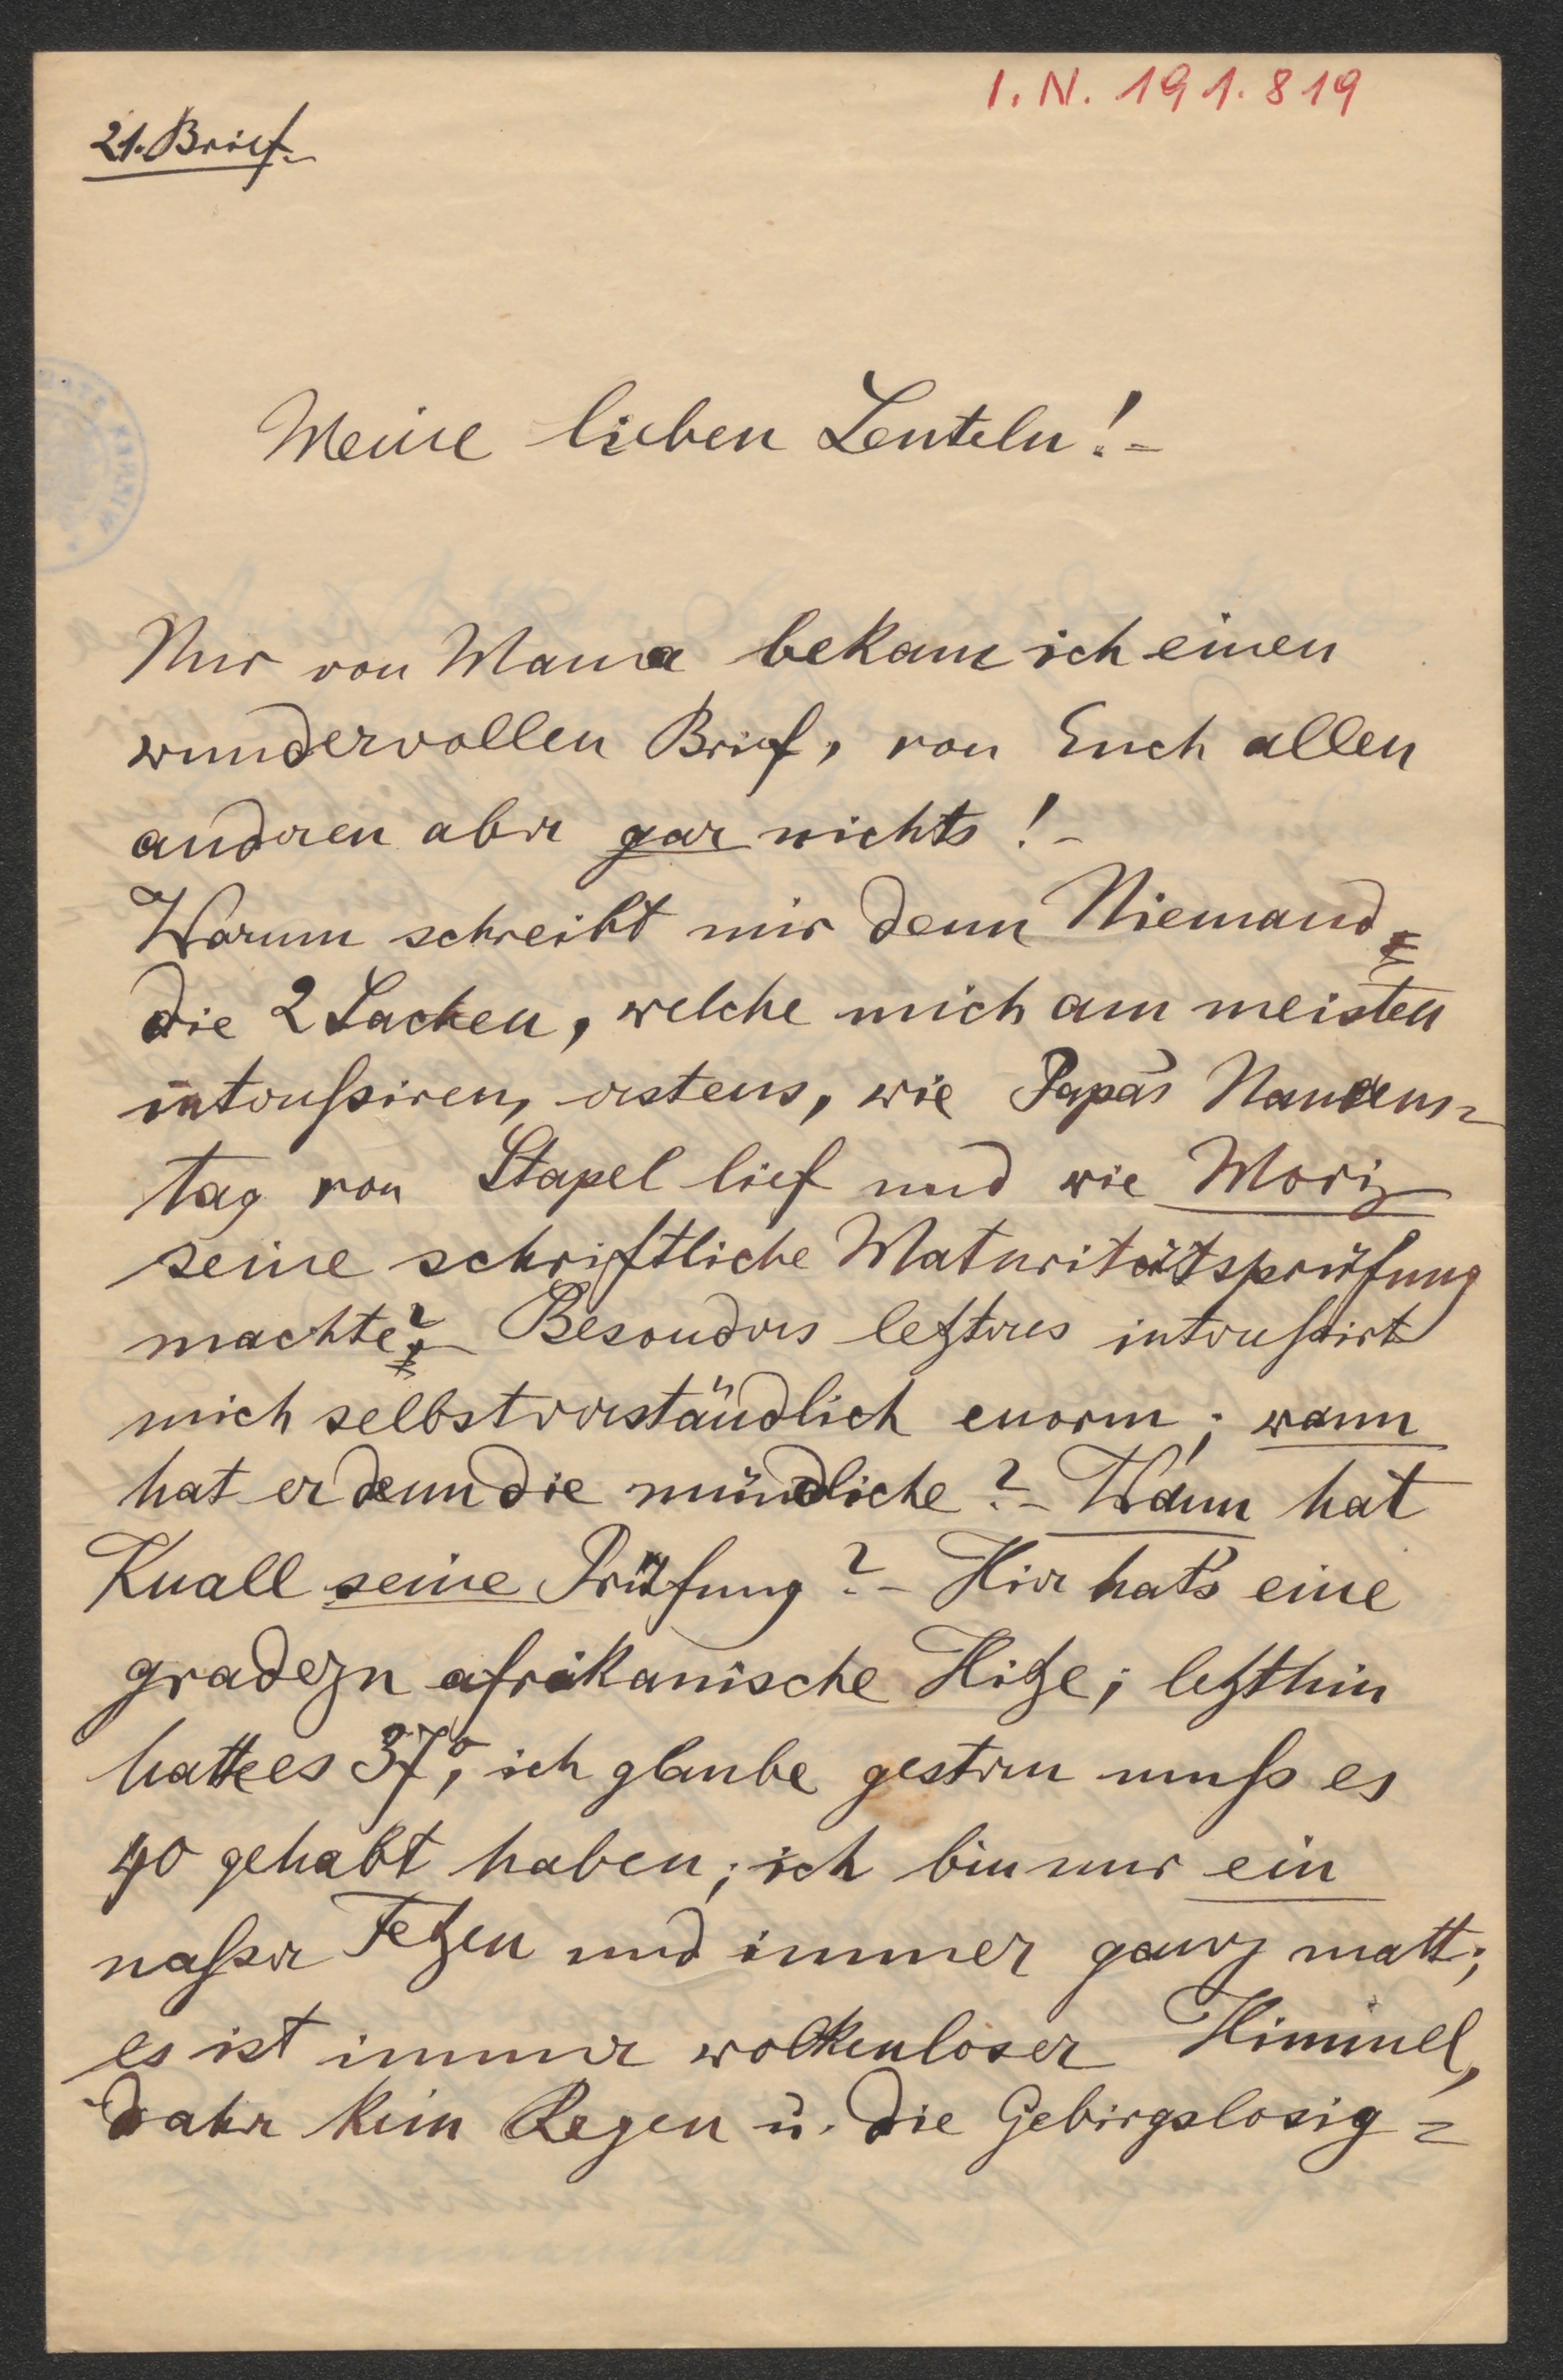 I.N. 191.819
21. Brief.
Meine lieben Leuteln! -
Nur von Mama bekam ich einen
wundervollen Brief, von Euch allen
anderen aber gar nichts! -
Warum schreibt mir denn Niemand
die 2 Sachen, welche mich am meisten
interessiren, erstens, wie Papa's Namens=
tag von Stapel lief und wie Moriz
seine schriftliche Maturitätsprüfung
machte? - Besonders letzteres interessirt
mich selbstverständlich enorm; wann
hat er denn die mündliche? - Wann hat
Knall seine Prüfung? - Hier hat's eine
gradezu afrikanische Hitze; letzthin
hatte es 37°, ich glaube gestern muß es
40 gehabt haben; ich bin nur ein
nasser Fetzen und immer ganz matt;
es ist immer wolkenloser Himmel,
daher kein Regen u. die Gebirgslosig=